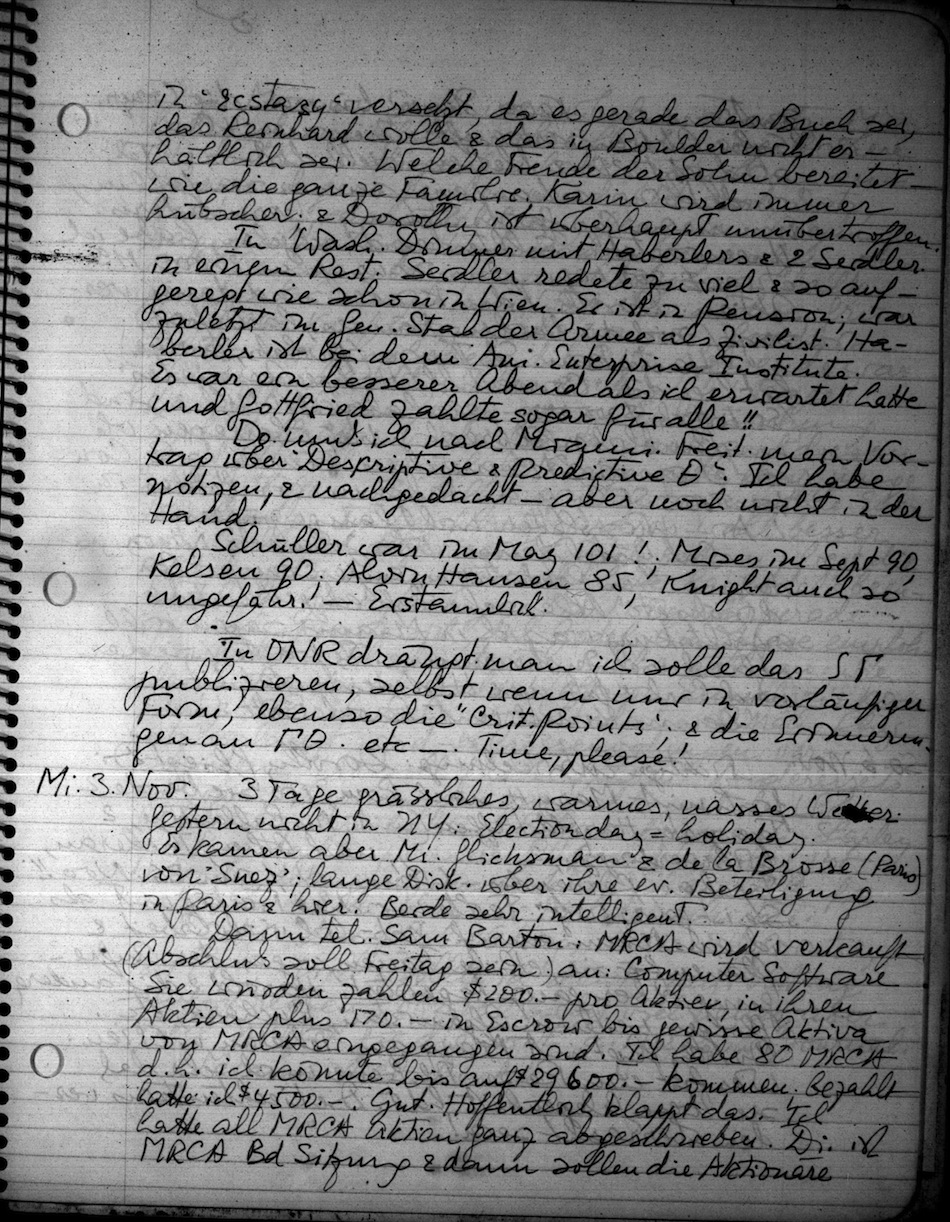 in "Ecstasy" versetzt, da es gerade das Buch sei,
das Reinhard wolle & das in Boulder nicht er-
hältlich sei. Welche Freude der Sohn bereitet –
wie die ganze Familie. Karin wird immer
hübscher. & Dorothy ist überhaupt unübertroffen.
In Wash. Dinner mit Haberlers & 2 Seidler.
in einem Rest. Seidler redete zu viel & so auf-
geregt wie schon in Wien. Er ist in Pension, war
zuletzt im Gen. Stab der Armee als Zivilist. Ha-
berler ist bei dem Am. Enterprise Institute.
Es war ein besserer Abend als ich erwartet hatte
und Gottfried zahlte sogar für alle!!
Do. muß ich nach Miami. Freit. mein Vor-
trag über "Descriptive & Predictive θ". Ich habe
Notizen, & nachgedacht – aber noch nicht in der
Hand.
Schüller war im May 101!, Mises im Sept 90,
Kelsen 90, Alvin Hansen 85, Knight auch so
ungefähr! – Erstaunlich.
In ONR drängt man ich solle das ST
publizieren, selbst wenn nur in vorläufiger
Form, ebenso die "Crit. Points", & die Erinnerun-
gen an Γθ. etc –. Time, please!
Mi. 3. Nov. 3 Tage grässliches, warmes, nasses Wetter.
Gestern nicht in NY. Election day = holiday.
Es kamen aber Mi. Glichsman & de la Brosse (Paris)
von "Suez"; lange Disk. über ihre ev. Beteiligung
in Paris & hier. Beide sehr intelligent.
Dann tel. Sam Barton: MRCA wird verkauft
(Abschluß soll Freitag sein) an: Computer Software
Sie würden zahlen $200.– pro Aktie, in ihren
Aktien plus 170.– in Escrow bis gewisse Aktiva
von MRCA eingegangen sind. Ich habe 80 MRCA
d.h. ich könnte bis auf $29600.– kommen. Bezahlt
hatte ich $4500.–. Gut. Hoffentlich klappt das. Ich
hatte all MRCA Aktien ganz abgeschrieben. Di. ist
MRCA Bd Sitzung & dann sollen die Aktionäre